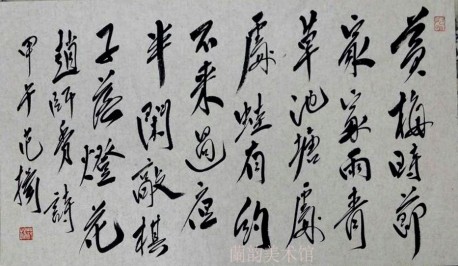 黄梅時節
家家雨青
草池塘處
處蛙有約
不来過夜
半閑敲棋
子落燈花
趙師秀詩
甲午范
蘭韵美术馆